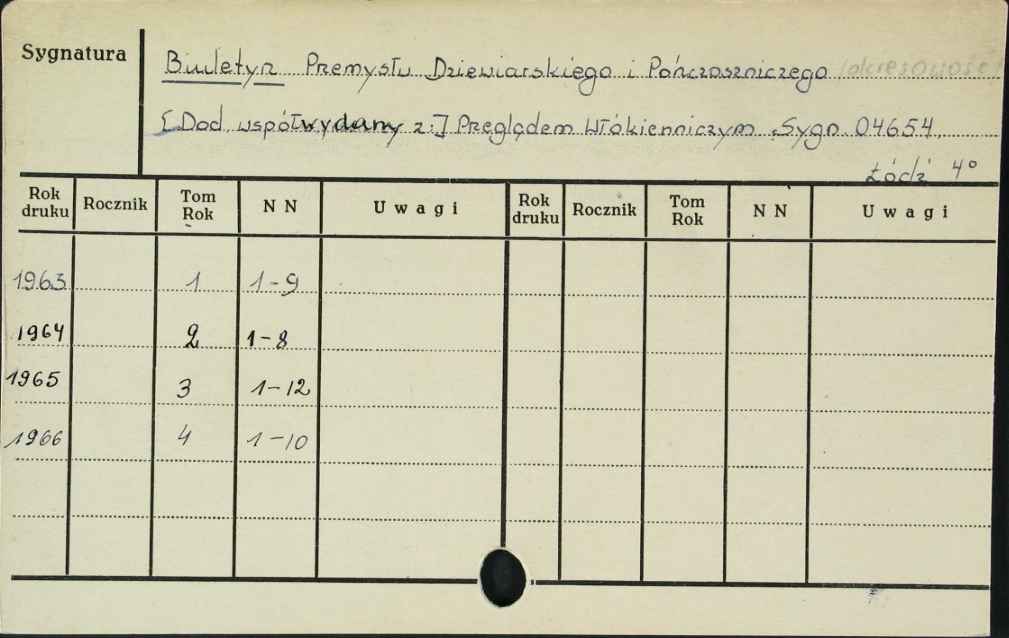 Sygnatura
Biuletyn Przemysłu Dziewiarskiego i Pończoszniczego
[Dod. współwydany z:] Przeglądem Włókienniczym. Sygn. 04654.
Łódź 4°
Rok druku Rocznik Tom Rok NN Uwagi Rok druku Rocznik Tom Rok NN Uwagi
1963 1 1-9
1964 2 1-8
1965 3 1-12
1966 4 1-10